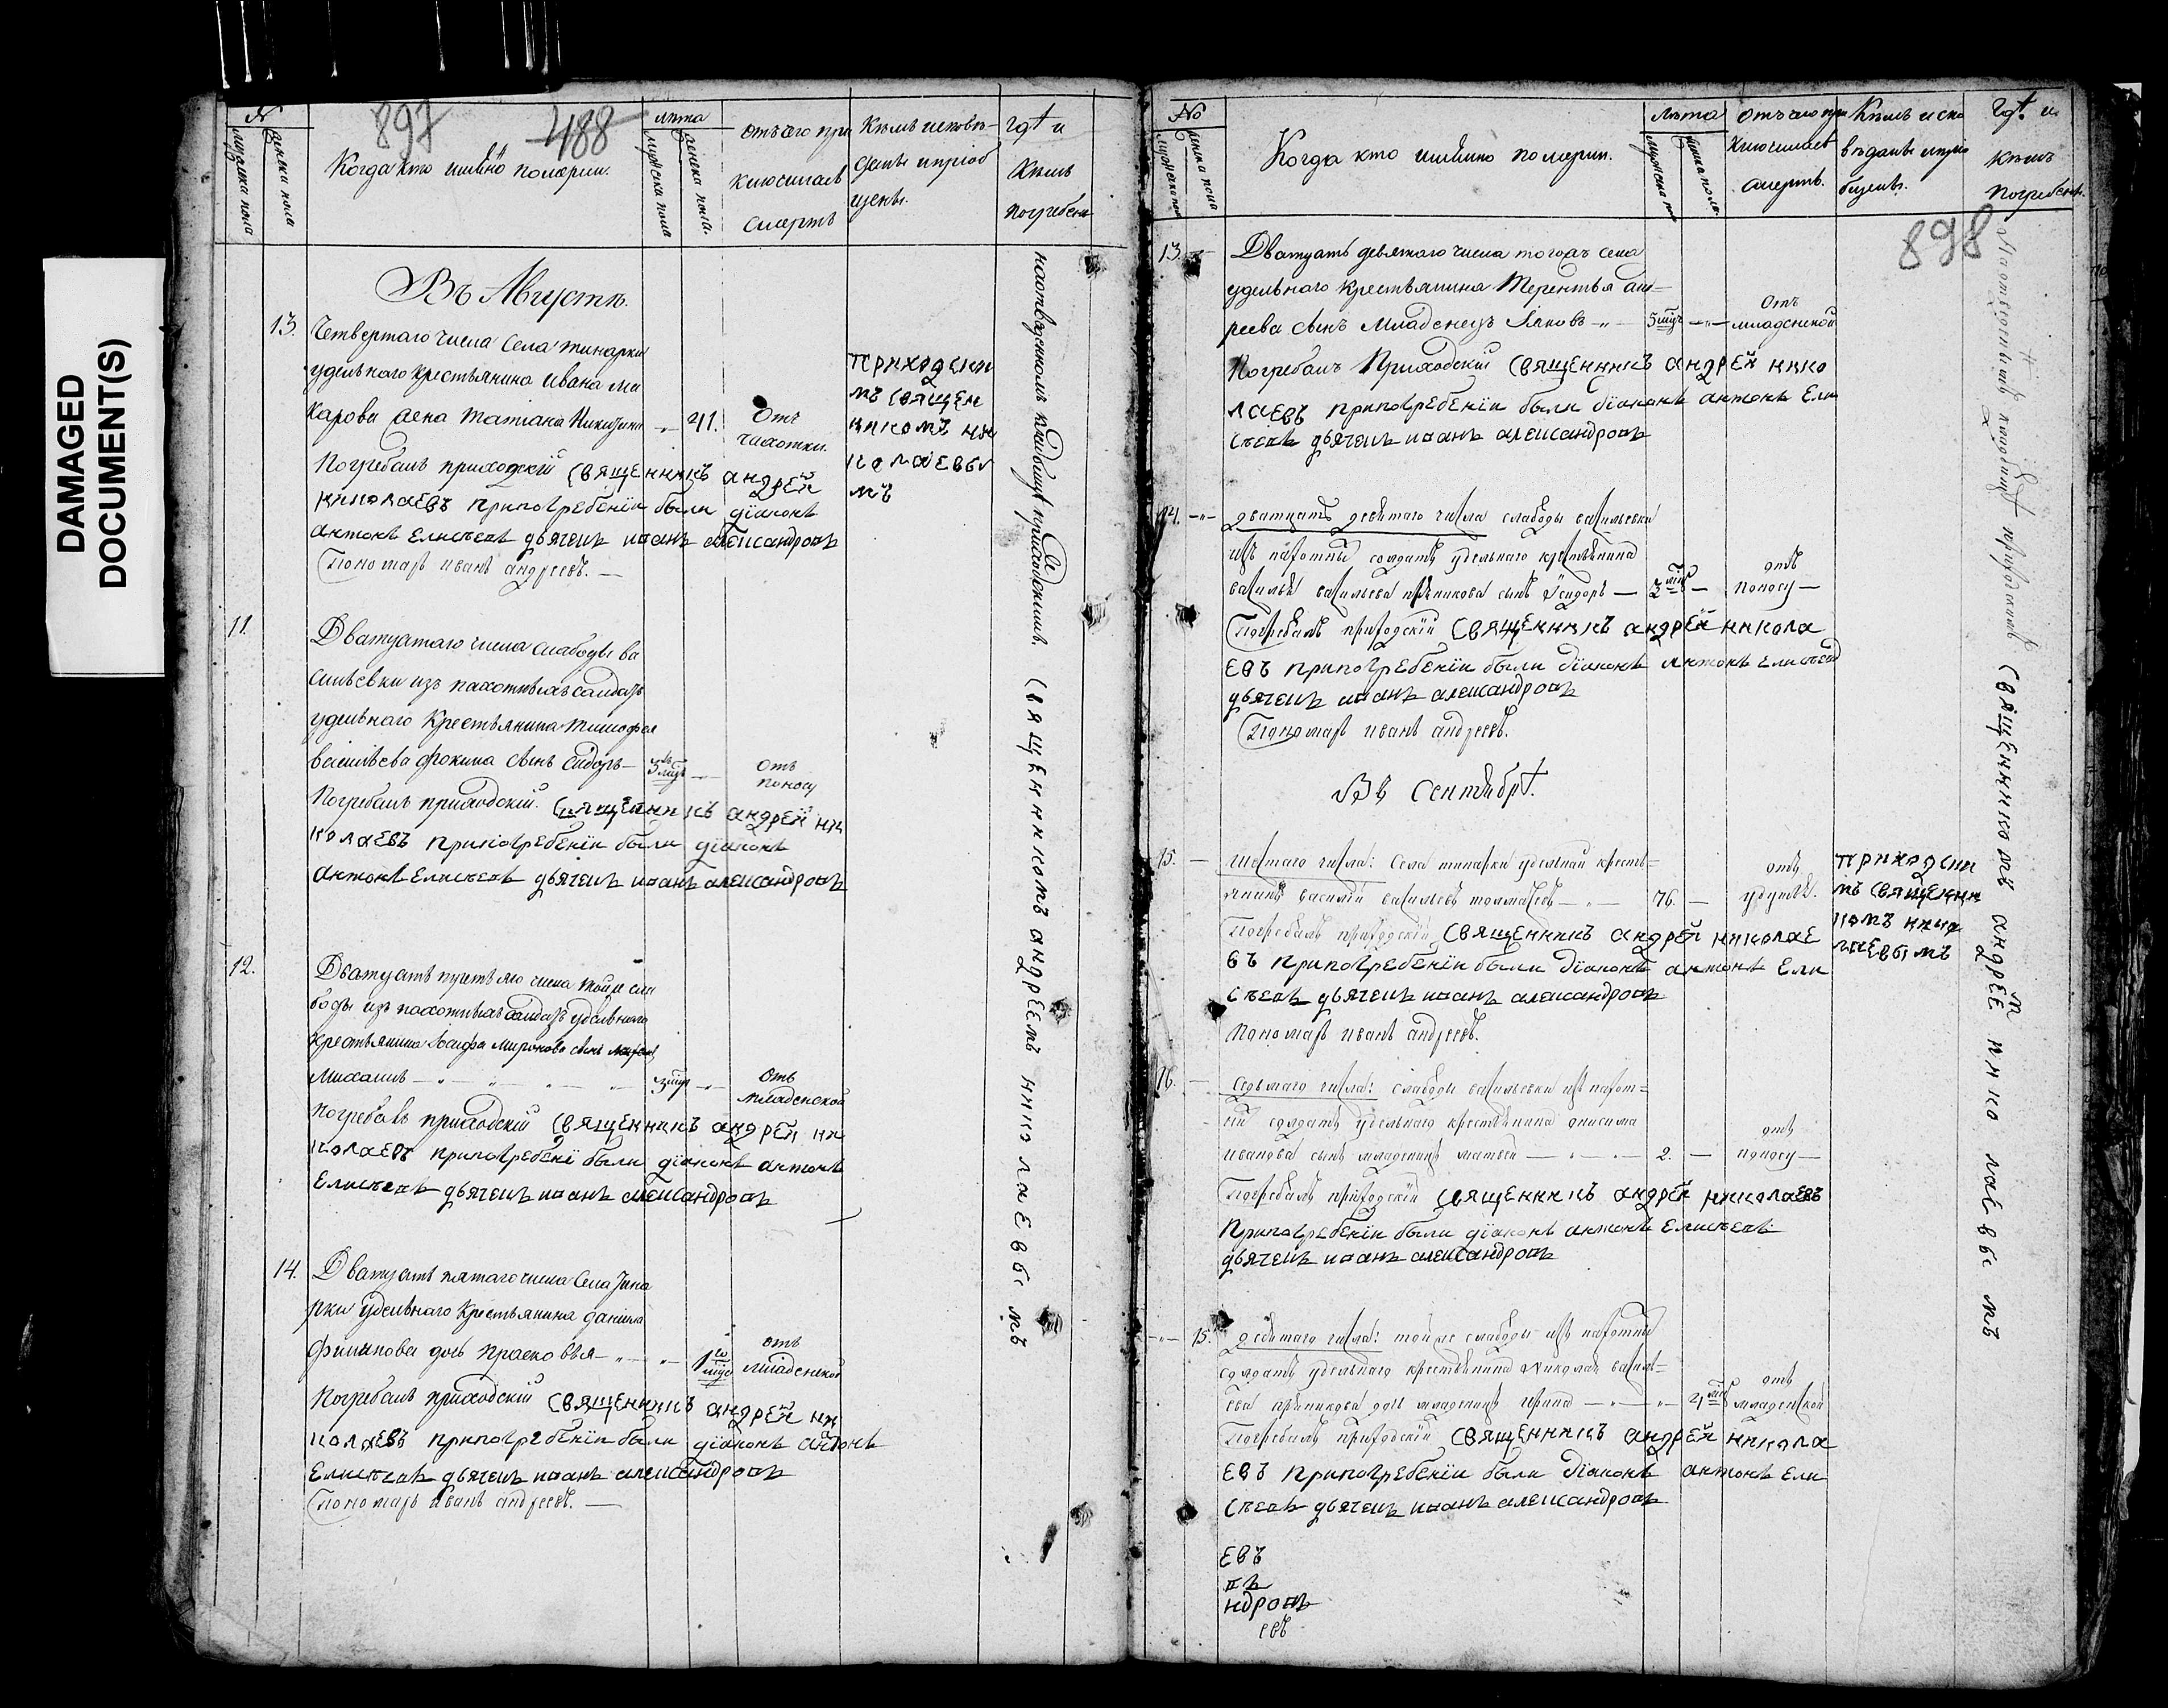 DAMAGED
DOCUMENT(S)
№
мужеска пола
женска пола
897
488
Когда кто именно померли.
лѣта
мужеска пола
женска пола.
отъ чего при
ключилась
смерть
Кѣмъ исповѣ-
даны и пріоб
щены.
гдѣ и
Кѣмъ
погребены
Въ Августѣ.
13.
Четвертаго числа Села тинарки
удельнаго крестьянина ивана ма
карова жена татіана Никитина
41.
отъ
чихотки.
Погребалъ приходскій священникъ андрей
николаевъ при погребеніи были діаконъ
антонъ Елисѣевъ дьячекъ иоанъ александровъ
Пономарь иванъ андреевъ.
приходски
мъ священ
никомъ ни
колаевы
мъ
11.
Дватцатаго числа слабоды ва
сильевки изъ пахотныхъ салдатъ
удельнаго Крестьянина тимофея
васильева фокина сынъ Сидоръ
5 мцъ
отъ
поносу
Погребалъ приходскій священникъ андрей ни
колаевъ при погребеніи были діаконъ
антонъ Елисѣевъ дьячекъ иоанъ александровъ
12.
Дватцать третьяго числа тойже сла
боды изъ пахотныхъ салдатъ удельнаго
крестьянина Іосифа миронова сынъ
Михаилъ
3 мцъ
отъ
младенской
погребалъ приходскій священникъ андрей ни
колаевъ при погребені были діаконъ антонъ
Елисѣевъ дьячекъ иоанъ александровъ
14.
Дватцать пятаго числа Села Тина
рки удельнаго Крестьянина данила
филипова дочь праско вья
1 мцъ
отъ
младенской
Погребалъ приходскій священникъ андрей ни
колаевъ при погребеніи были діаконъ антонъ
Елисѣевъ дьячекъ иоанъ александровъ
Пономарь иванъ андреевъ.
на отведенномъ кладбищѣ приходскимъ священникомъ андреемъ николаевымъ
№
мужеска пола
женска пола
Когда кто именно померли.
лѣта
отъ чего при
ключилась
смерть.
Кѣмъ испо
вѣданы и пріо
бщены.
Гдѣ и
кѣмъ
погребены.
898
13.
Дватцать девятаго числа тогожъ села
удельнаго крестьянина Терентья ан
реева сынъ младенецъ Яковъ
5 мцъ
отъ
младенской
Погребалъ Приходскій священникъ андрей нико
лаевъ при погребеніи были діаконъ антонъ Ели
сѣевъ дьячекъ иоанъ александровъ
14.
дватцать девятаго числа слабоды васильевки
изъ пахотны солдатъ удельнаго крестьянина
василья васильева пряникова сынъ Ѳсидоръ
3 мцъ
отъ
поносу
Погребалъ приходскій священникъ андрей никола
евъ при погребеніи были діаконъ антонъ елисѣевъ
дьячекъ иоанъ александровъ
Пономарь иванъ андреевъ.
Въ Сентябрѣ.
15.
шестаго числа: села тинарки удельнай кресть=
янинъ василій васильевъ толмачевъ
76.
отъ
удушья.
Погребалъ приходскій священникъ андрей николае
въ при погребеніи были діаконъ антонъ Ели
сѣевъ дьячекъ иоанъ александровъ
Пономарь иванъ андреевъ.
приходски
мъ священни
комъ нико
лаевымъ
16.
седьмаго числа: слабоды васильевки изъ пахот=
ны солдатъ удельнаго крестьянина онисима
иванова сынъ младенецъ матвей
2.
отъ
поносу
Погребалъ приходскій священникъ андрей николаевъ
При погребеніи были діаконъ антонъ Елисѣевъ
дьячекъ иоанъ александровъ
15.
девятаго числа: тойже слабоды изъ пахотны
солдатъ удельнаго крестьянина николая василь=
ева пряникова дочь младенецъ ирина
4 мцъ
отъ
младенской
Погребалъ приходскій священникъ андрей никола
евъ При погребеніи были діаконъ антонъ Ели
сѣевъ дьячекъ иоанъ александровъ
евъ
въ
ндровъ
евъ
На отведенномъ кладбищѣ приходскимъ священникомъ андреемъ николаевымъ